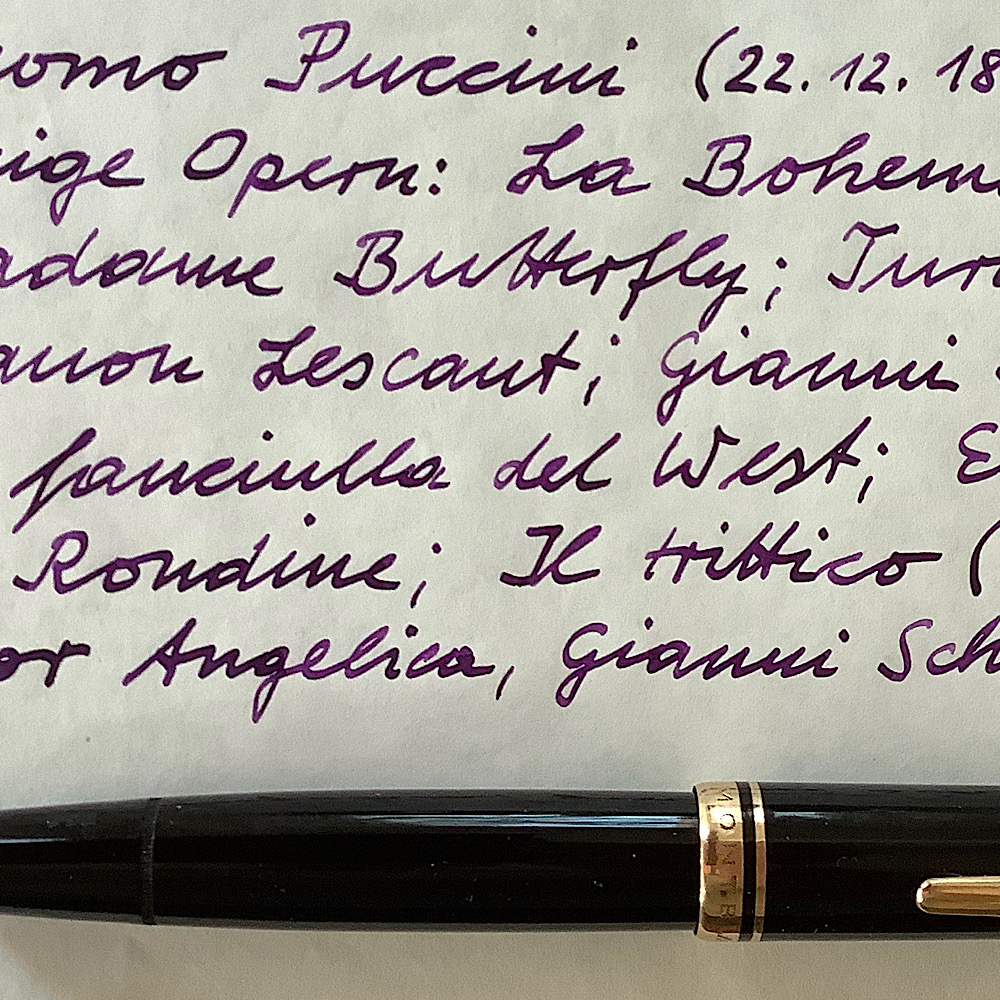 omo Puccini (22. 12. 18
ige Opern: La Bohem
adame Butterfly; Tur
anon Lescaut; Gianni
fanciulla del West; E
Rondine; Il trittico (
or Angelica, Gianni Sch
MONTBL